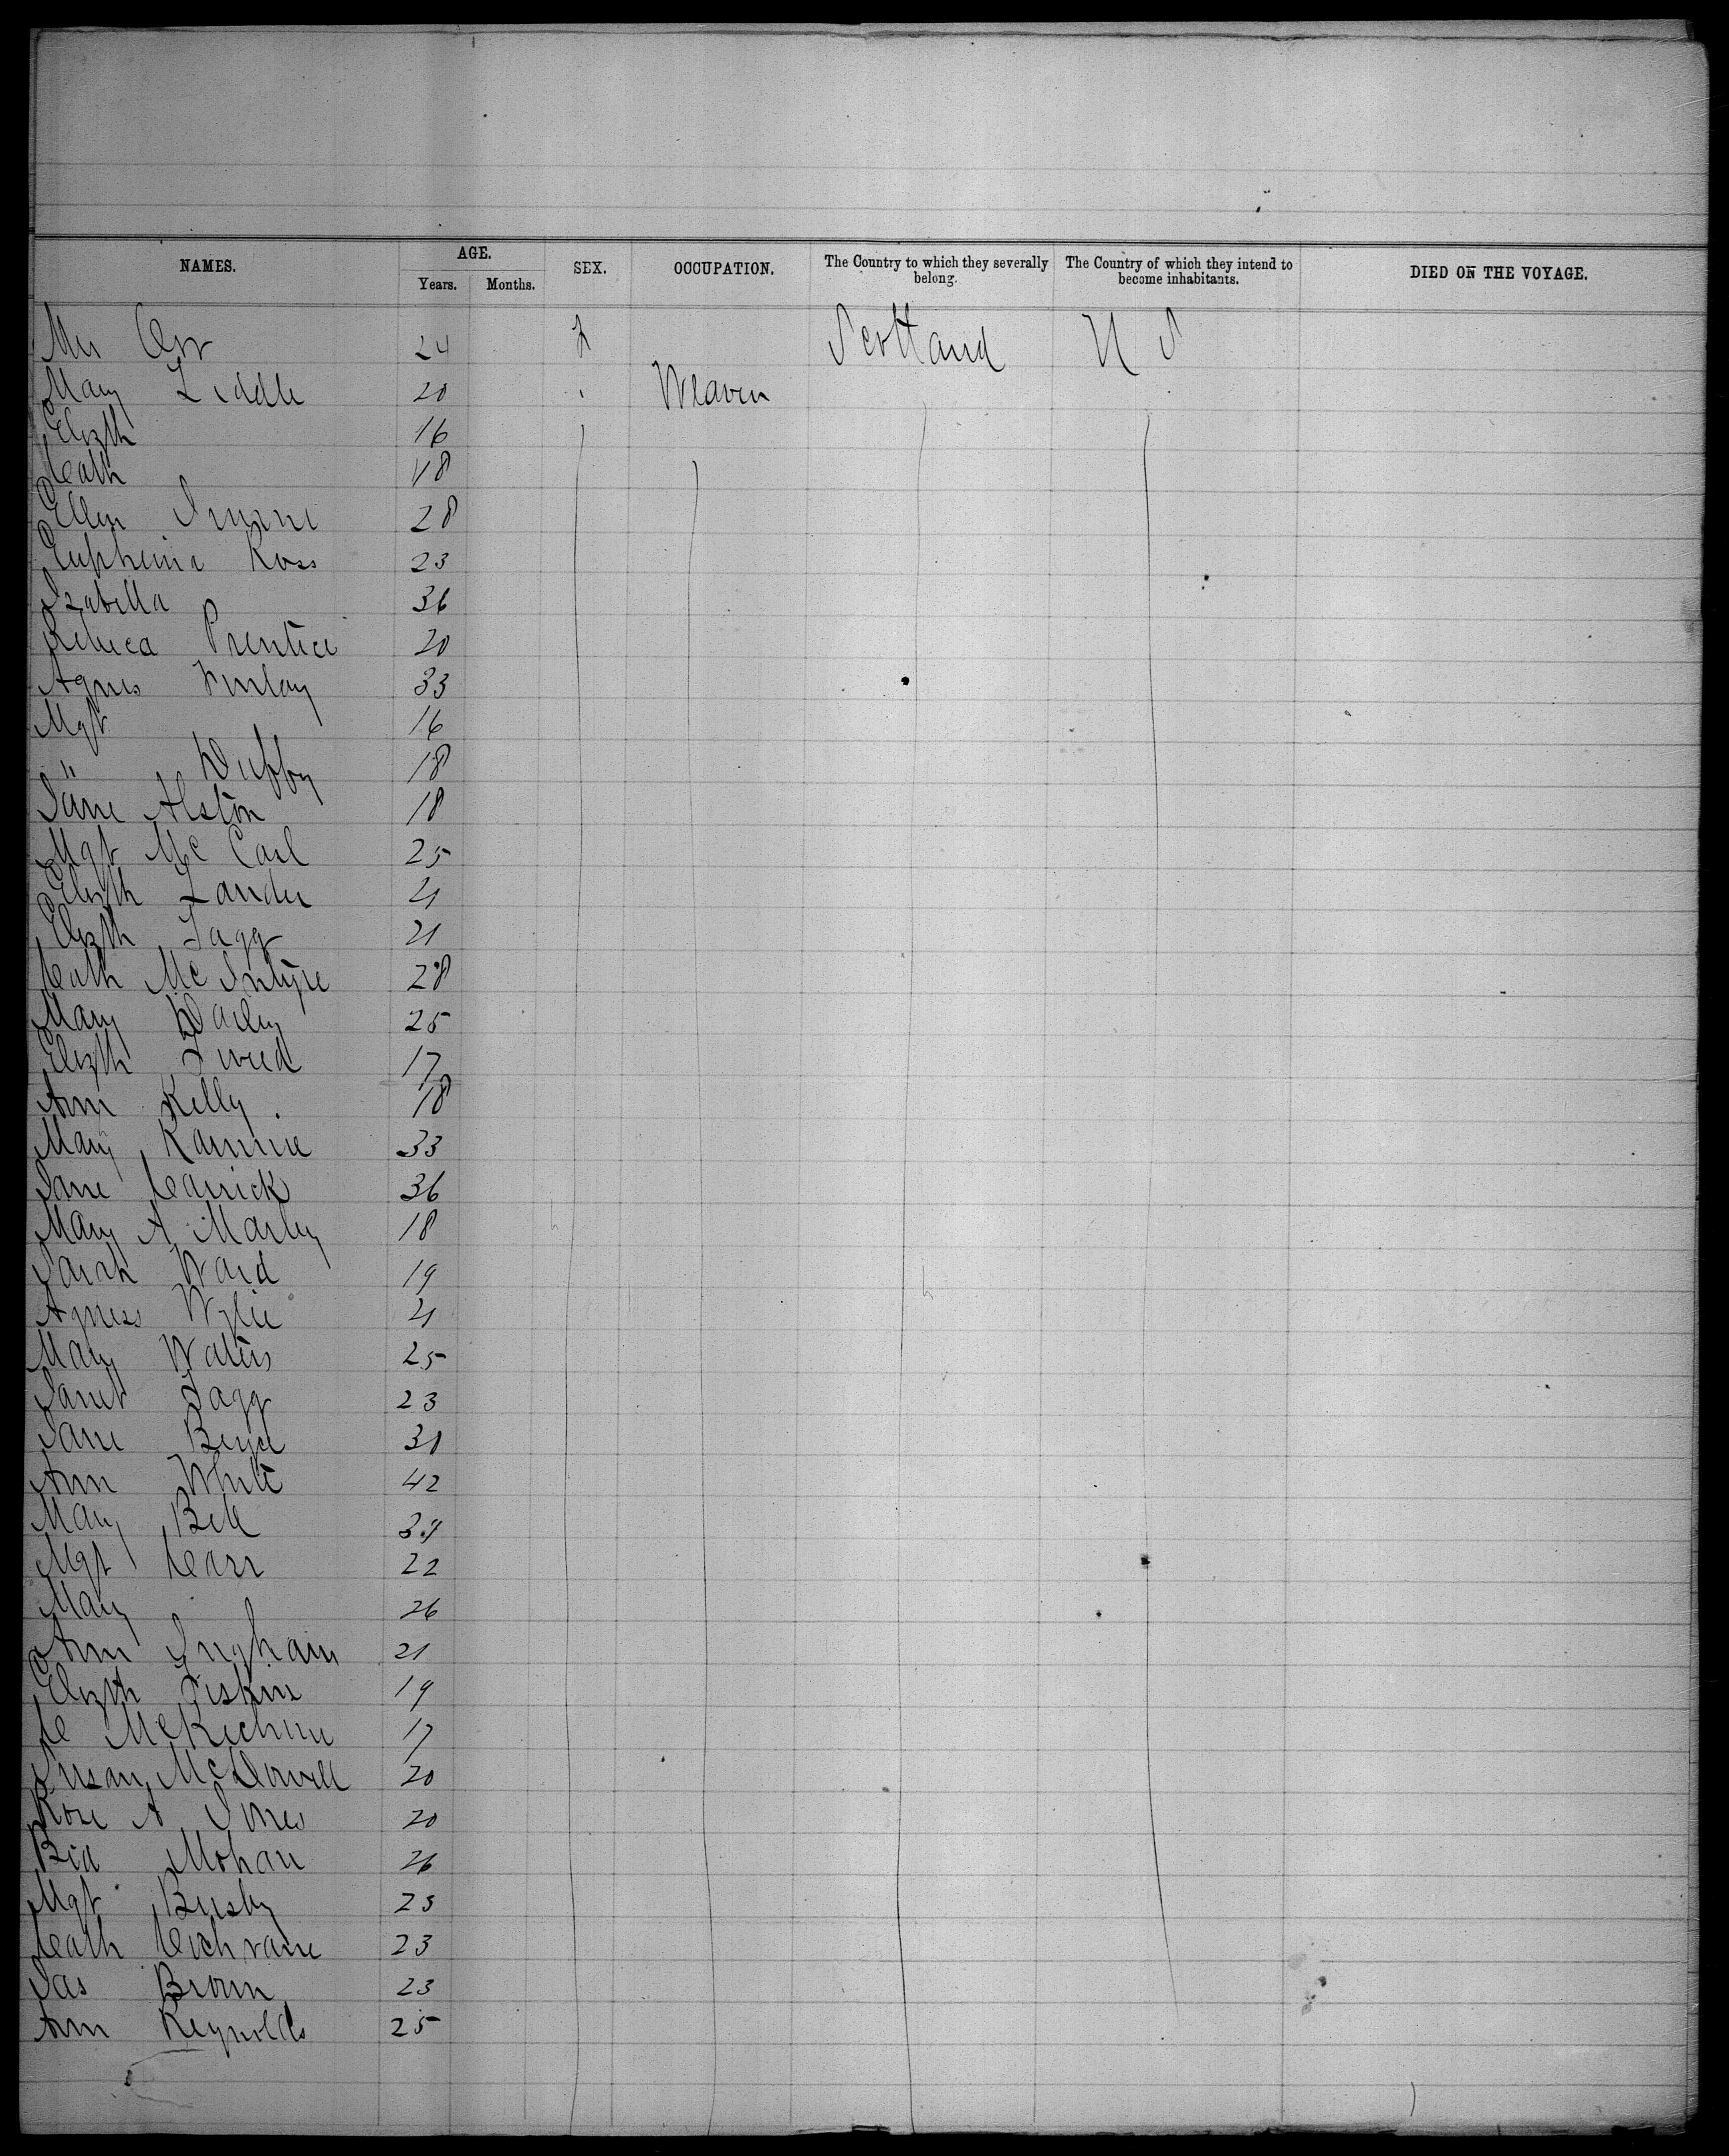 NAMES. AGE. SEX. OCCUPATION. The Country to which they severally belong. The Country of which they intend to become inhabitants. DIED ON THE VOYAGE.
Years. Months.
Mrs Orr 24 f Scotland U S
Mary Liddle 20 " Weaver
Elizth 16
Cath 18
Ellen 28
Euphemia Ross 23
Izabella 36
Rebeca Prentice 20
Agnes Finlay 33
Mgt 16
" Duffy 18
Jane Alston 18
Mgt Mc Carl 25
Elizth Lander 21
Elizth Tagg 21
Cath Mc Intyre 28
Mary Dailey 25
Elizth Tweed 17
Ann Kelly 18
Mary Rannie 33
Jane Carrick 36
Mary A Marley 18
Sarah Ward 19
Agness Wylie 21
Mary Waters 25
Janet Tagg 23
Jane 30
Ann White 42
Mary Bell
Mgt Carr 22
Mary 26
Ann Ingham 21
Elizth 19
C McKechnie 17
Susan McDowell 20
Rose A Jones 20
Bid Mohan 26
Mgt Busby 23
Cath Cochrane 23
Jas Brown 23
Ann Reynolds 25